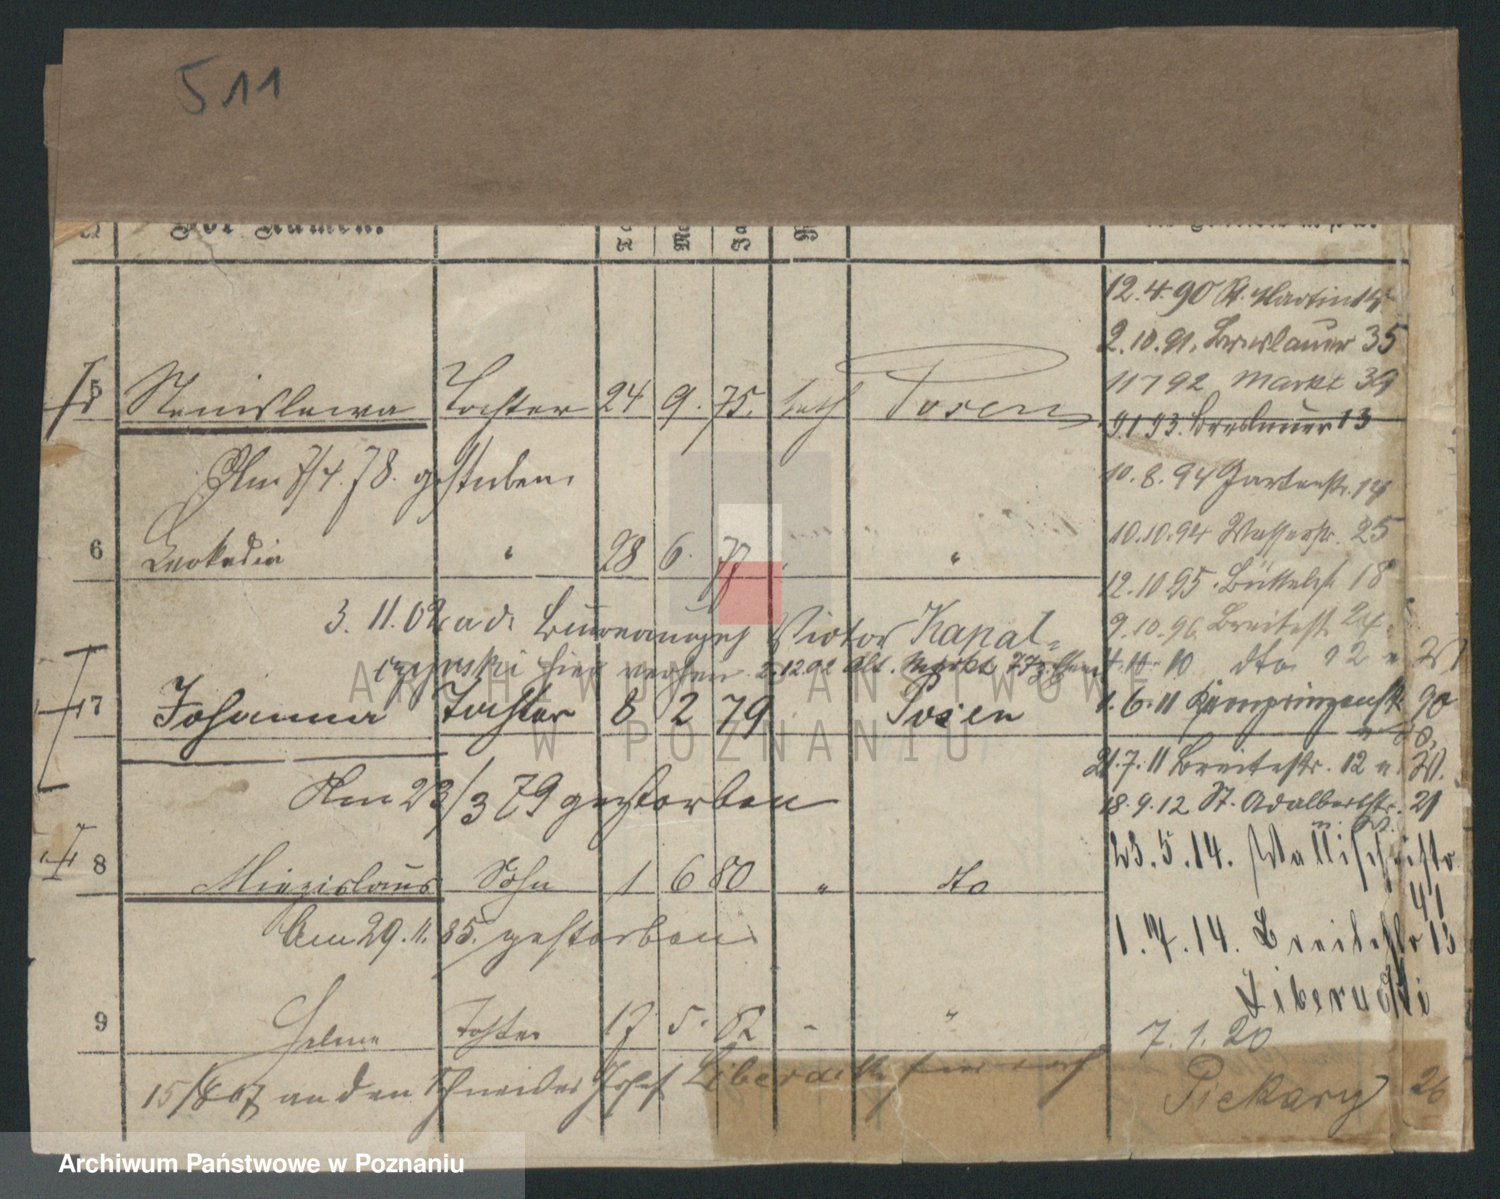 511
5 Stanislawa Tochter 24 9. 75. kath Posen
Am 7/4. 78. gestorben.
6 Leokadia " 28 6. 77 "
3. 11. 02 a d. Bureaugeh Victor Kapal-
czynski hier verehen. 2.12 02 Alt. Markt 77
7 Johanna Tochter 8 2 79 Posen
Am 23/3 79 gestorben
8 Miezislaus Sohn 1 6 80 " do
Am 29. 11. 85. gestorben
9 Helene Tochter 17. 5. 82 - "
15/8 07 an den Schneider Josef Liberacki hier verh
12. 4. 90 St. Martin 15
2. 10. 91. Breslauer 35
11 7 92 Markt 39
9. 1 93. Breslauer 13
10. 8. 94 Gartenstr. 14
10. 10. 94 Wasserstr. 25
12. 10 95. Büttelstr. 18
9. 10. 96. Breitestr. 24
10 dto 12
1. 6. 11 Kronprinzenstr. 90
21. 7. 11 Breitestr. 12 u. W.
18. 9. 12 St. Adalbertstr. 21
23. 5. 14. Wallischeistr
41
1. 7. 14. Breitestr 13
Liberacki
7. 1. 20
Piekary 26
ARCHIWUM PAŃSTWOWE
W POZNANIU
Archiwum Państwowe w Poznaniu